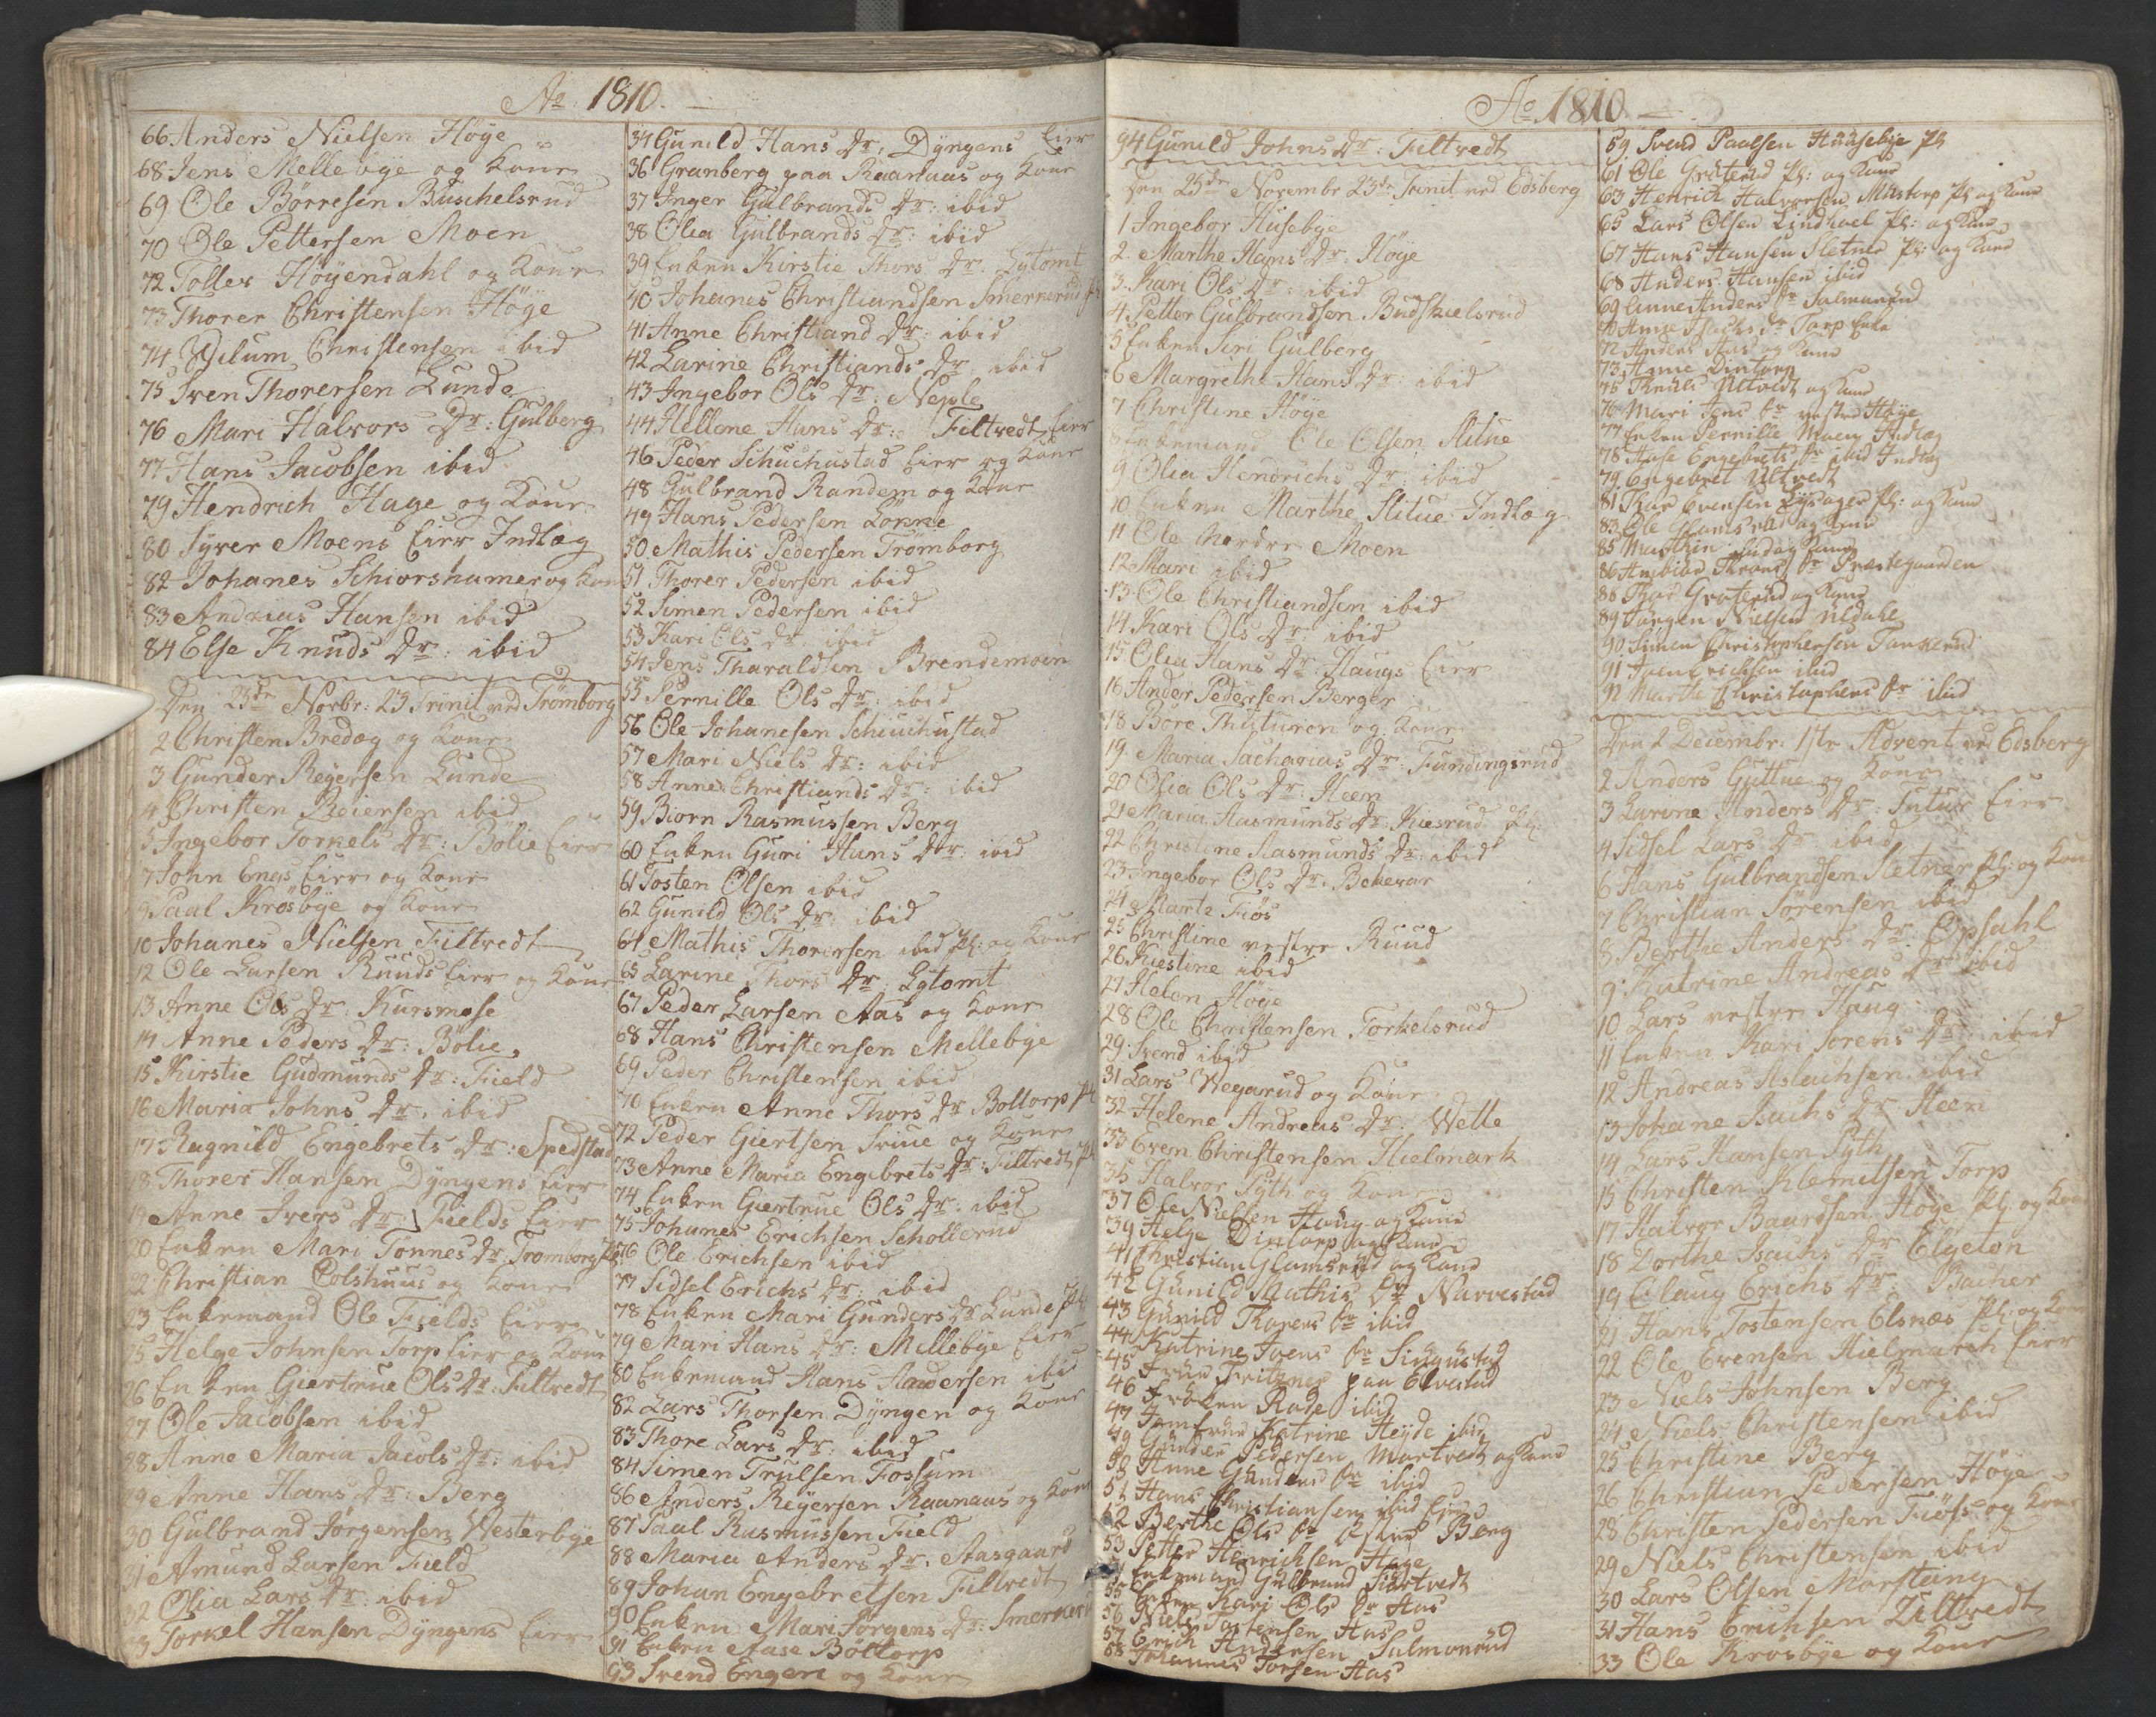 Ao: 1810.
66 Anders Nielsen Höye
68 Jens Mellebye og Kone
69 Ole Börresen Buschelsrud
70 Ole Pettersen Moen
72 Tolles Höyendahl og Kone
73 Thorer Christensen Höye
74 Christensen ibid
75 Iven Thorersen Lunde
76 Mari Halvors Dr: Gulberg
77 Hans Jacobsen ibid
79 Hendrich Hage og Kone
80 Syver Moens Eier Indlæg
82 Johanes Schiorshamer og Kone
83 Andreas Hansen ibid
84 Else Knuds Dr: ibid
Den 25de Novbr: 23 Trinit: ved Trömborg
2 Christen Bredog og Kone
3 Gunder Reyersen Lunde
4 Christen Reiersen ibid
5 Ingebor Torkels Dr: Bölie Eier
7 John Engs Eier og Kone
9 Paal Krosbye og Kone
10 Johanes Nielsen Filtvedt
12 Ole Larsen Ruuds Eier og Kone
13 Anne Ols Dr: Kursmose
14 Anne Peders Dr: Bölie
15 Kirstie Gudmunds Dr: Field
16 Maria Johns Dr: ibid
17 Ragnild Engebrets Dr: Spedstad
18 Thorer Hansen Dyngens Eier
19 Anne Ivers Dr: Fields Eier
20 Enken Mari Tonnes Dr Tromborg Pl
22 Christian Colshuus og Kone
23 Enkemand Ole Fields Eier
25 Helge Johnsen Torp Eier og Kone
26 Enken Giertrue Ols Dr: Filtvedt
27 Ole Jacobsen ibid
28 Anne Maria Jacobs Dr: ibid
29 Anne Hans Dr: Berg
30 Gulbrand Jörgensen Westerbye
31 Amund Larsen Field
32 Olia Lars Dr: ibid
33 Torkel Hansen Dyngens Eier
34 Gunild Hans Dr: Dyngens Eier
36 Granberg paa Raanaas og Kone
37 Inger Gulbrands Dr: ibid
38 Olea Gulbrands Dr: ibid
39 Enken Kirstie Thors Dr. Lytomt
40 Johanes Christiandsen Smerkerud Pl
41 Anne Christiand Dr: ibid
42 Larine Christiands Dr ibid
43 Ingebor Ols Dr: Neple
44 Hellene Hans Dr: Filtvedt Eier
46 Peder Schuchustad Eier og Kone
48 Gulbrand Randem og Kone
49 Hans Pedersen Lönne
50 Mathis Pedersen Trömborg
51 Thorer Pedersen ibid
52 Simen Pedersen ibid
53 Kari Ols Dr ibid
54 Jens Tharaldsen Brendemoen
55 Pernille Ols Dr: ibid
56 Ole Johanesen Schiuchustad
57 Mari Niels Dr: ibid
58 Anne Christiands Dr: ibid
59 Biorn Rasmussen Berg
60 Enken Guri Hans Dr: ibid
61 Tosten Olsen ibid
62 Gunild Ols Dr: ibid
64 Mathis Thorersen ibid Pl: og Kone
65 Larine Thors Dr: Lytomt
67 Peder Larsen Aas og Kone
68 Hans Christensen Mellebye
69 Peder Christensen ibid
70 Enken Anne Thors Dr Boltorp Pl
72 Peder Giertsen Sriue og Kone
73 Anne Maria Engebrets Dr: Filtvedt Pl
74 Enken Giertrue Ols Dr: ibid
75 Johanes Erichsen Schollerud
76 Ole Erichsen ibid
77 Sidsel Erichs Dr: ibid
78 Enken Mari Gunders Dr Lunde Pl:
79 Mari Hans Dr: Mellebye Eier
80 Enkemand Hans Andersen ibid
82 Lars Thorsen Dyngen og Kone
83 Thore Lars Dr: ibid
84 Simen Trulsen Fossum
86 Anders Reyersen Raanaas og Kone
87 Paal Rasmussen Field
88 Maria Anders Dr: Aasgaard
89 Johan Engebretsen Filtvedt
90 Enken Mari Jörgens Dr: Smerker
91 Enken Aase Böltorp
93 Svend Engen og Kone
Ao 1810
94 Gunild Johns Dr: Filtvedt
Den 25de Novembr 23de Trinit ved Edsberg
1 Ingebor Husebye
2 Marthe Hans Dr: Höye
3 Kari Ols Dr: ibid
4 Petter Gulbrandsen Budskielsrud
5 Enken Siri Gulberg
6 Margrethe Hans Dr: ibid
7 Christine Höye
8 Enkemand Ole Olsen Slitue
9 Olia Hendrichs Dr: ibid
10 Enken Marthe Slitue Indlæg
11 Ole Nordre Moen
12 Mari ibid
13 Ole Christiandsen ibid
14 Kari Ols Dr: ibid
15 Olia Hans Dr: Haugs Eier
16 Ander Pedersen Berger
18 Böre Thuturen og Kone
19 Maria Sacharias Dr: Fundingsrud
20 Olia Ols Dr: Heen
21 Maria Aasmunds Dr: Kiesrud Pl
22 Christine Aasmunds Dr: ibid
23 Ingebor Ols Dr: Bekevar
24 Marte Fiös
25 Christine vestre Ruud
26 Kiestine ibid
27 Helen Höye
28 Ole Christensen Torkelsrud
29 Svend ibid
31 Lars Wegarud og Kone
32 Helene Andreas Dr: Welle
33 Even Christensen Hielmark
35 Halvor Syth og Kone
37 Ole Nielsen Haug og Kone
39 Helge Dintorp og Kone
41 Christian Glamsrud og Kone
42 Gunild Mathis Dr Narvestad
43 Gunild Thorers Dr ibid
44 Katrine Ivens Dr
45 Frue Fritzner paa Elvestad
46 Fröken Rode ibid
47 Jomfrue Katrine Heyde ibid
49 Gunder Pedersen Martvedt og Kone
50 Anne Gunders Dr ibid
51 Hans Christiansen ibid Eier
52 Berthe Ols Dr Östre Berg
53 Petter Henrichsen Hage
54 Enkemand Gulbrand Fiörtvedt
55 Enken Kari Ols Dr Aas
56 Niels Tostensen Aas
57 Erich Andersen Salmonrud
58 Johannes Torsen Aas
59 Svend Paalsen Huusebye Pl
61 Ole Grÿterud Pl: og Kone
63 Henrich Halvorsen Mustorp Pl og Kone
65 Lars Olsen Lindhoel Pl: og Kone
67 Hans Hansen Sletner Pl: og Kone
68 Anders Hansen ibid
69 Anne Anders Dr Salmonrud
70 Anne Isachs Dr Torp Enke
72 Anders Aas og Kone
73 Anne Dintorp
75 Ultvedt og Kone
76 Mari Jens Dr vestre Höye
77 Enken Pernille Moen Indlæg
78 Aase Engebrets Dr ibid Indlæg
79 Engebret Ultvedt
81 Thor Evensen Pl: og Kone
83 Ole Glamsrud og Kone
85 Kone
86 Dr Prestegaarden
88 Thor Groterud og Kone
89 Jörgen Nielsen Nedahl
90 Simen Christophersen Tankerud
91 Iver Erichsen ibid
92 Marthe Christophers Dr ibid
Den 2 Decembr: 1ste Advent ved Edsberg
2 Anders Guttue og Kone
3 Larine Anders Dr: Eier
4 Sidsel Lars Dr ibid
6 Hans Gulbrandsen Sletner Pl: og Kone
7 Christian Sörensen ibid
8 Berthe Anders Dr: Opsahl
9 Katrine Andreas Dr ibid
10 Lars vestre Haug
11 Enken Kari Sorens Dr: ibid
12 Andreas Aslachsen ibid
13 Johane Isachs Dr Heen
14 Lars Hansen Syth
15 Christen Klemetsen Torp
17 Halvor Baardsen Höye Pl: og Kone
18 Dorthe Isachs Dr Elgeton
19 Olaug Erichs Dr: Bacher
21 Hans Tostensen Elsnæs Pl: og Kone
22 Ole Evensen Hielmarch Eier
23 Niels Johnsen Berg
24 Niels Christensen ibid
25 Christine Berg
26 Christian Pedersen Höye
28 Christen Pedersen Fiös og Kone
29 Niels Christensen ibid
30 Lars Olsen Morstang
31 Hans Erichsen Ultvedt
33 Ole Krosbye og Kone